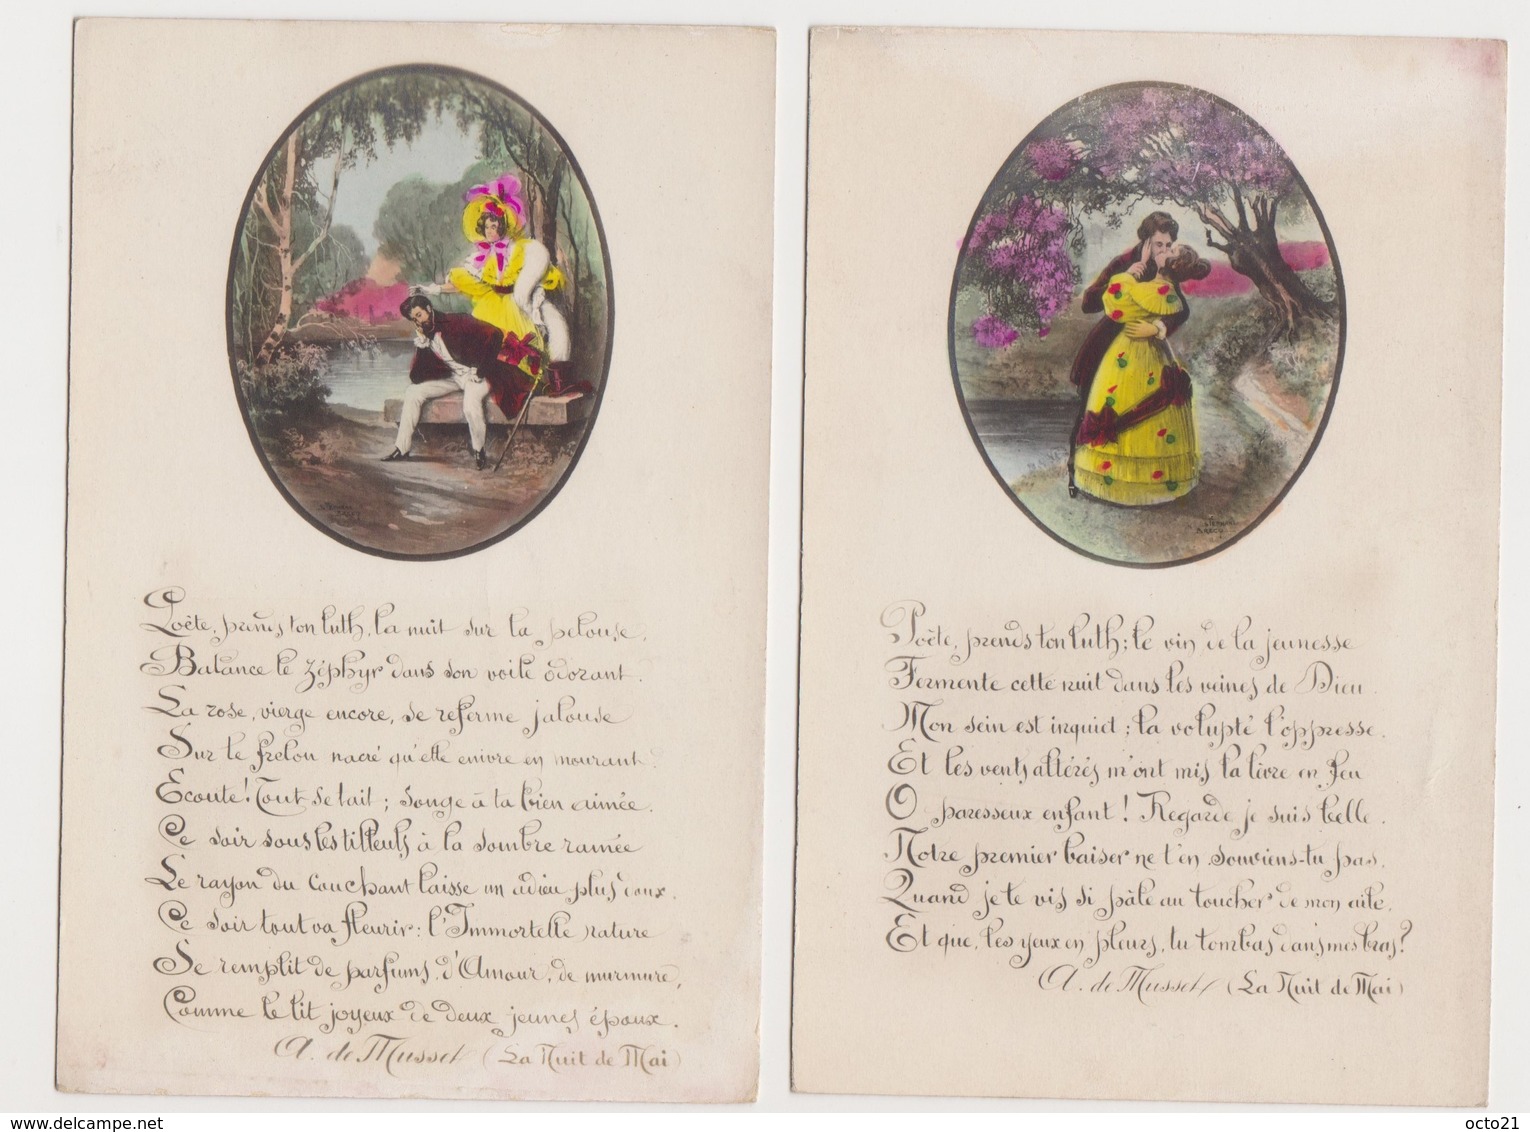 Poëte, prends ton luth, la nuit sur la pelouse,
Balance le zéphyr dans son voile odorant.
La rose, vierge encore, se referme jalouse
Sur le frelon nacré qu'elle enivre en mourant.
Ecoute! Tout se tait; songe à ta bien aimée.
Ce soir sous les tilleuls à la sombre ramée
Le rayon du couchant laisse un adieu plus doux.
Ce soir tout va fleurir: l'Immortelle nature
Se remplit de parfums, d'Amour, de murmure,
Comme le lit joyeux de deux jeunes époux.
A. de Musset (La Nuit de Mai)
STEPHANE
BRECY
Poëte, prends ton luth; le vin de la jeunesse
Fermente cette nuit dans les veines de Dieu.
Mon sein est inquiet; la volupté l'oppresse.
Et les vents altérés m'ont mis la lèvre en feu
O paresseux enfant! Regarde je suis belle.
Notre premier baiser ne t'en souviens-tu pas,
Quand je te vis si pâle au toucher de mon aile,
Et que, les yeux en pleurs, tu tombas dans mes bras?
A. de Musset (La Nuit de Mai)
octo21